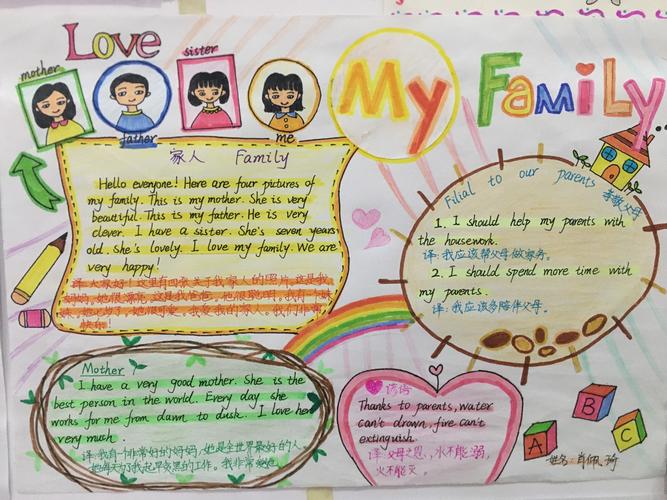 Love
mother
father
sister
me
My Family
家人 Family
Hello everyone! Here are four pictures of
my family. This is my mother. She is very
beautiful. This is my father. He is very
clever. I have a sister. She's seven years
old. She's lovely. I love my family. We are
very happy!
译:大家好!这里有四张关于我家人的照片,这是我
妈妈,她很漂亮,这是我爸爸,他很聪明,我有一个妹
妹,她七岁了,她很可爱,我爱我的家人。我们非常
快乐!
Filial to our parents 孝敬父母
1. I should help my parents with
the housework.
译:我应该帮父母做家务。
2. I should spend more time with
my parents.
译:我应该多陪伴父母。
Mother
I have a very good mother. She is the
best person in the world. Every day she
works for me from dawn to dusk. I love her
very much.
译:我有一个非常好的妈妈,她是全世界最好的人,
她每天为了我起早贪黑的工作。我非常爱她
谚语
Thanks to parents, water
can't drown, fire can't
extinguish.
译:父母之恩,水不能溺,
火不能灭。
A
B
C
姓名:肖佩琦